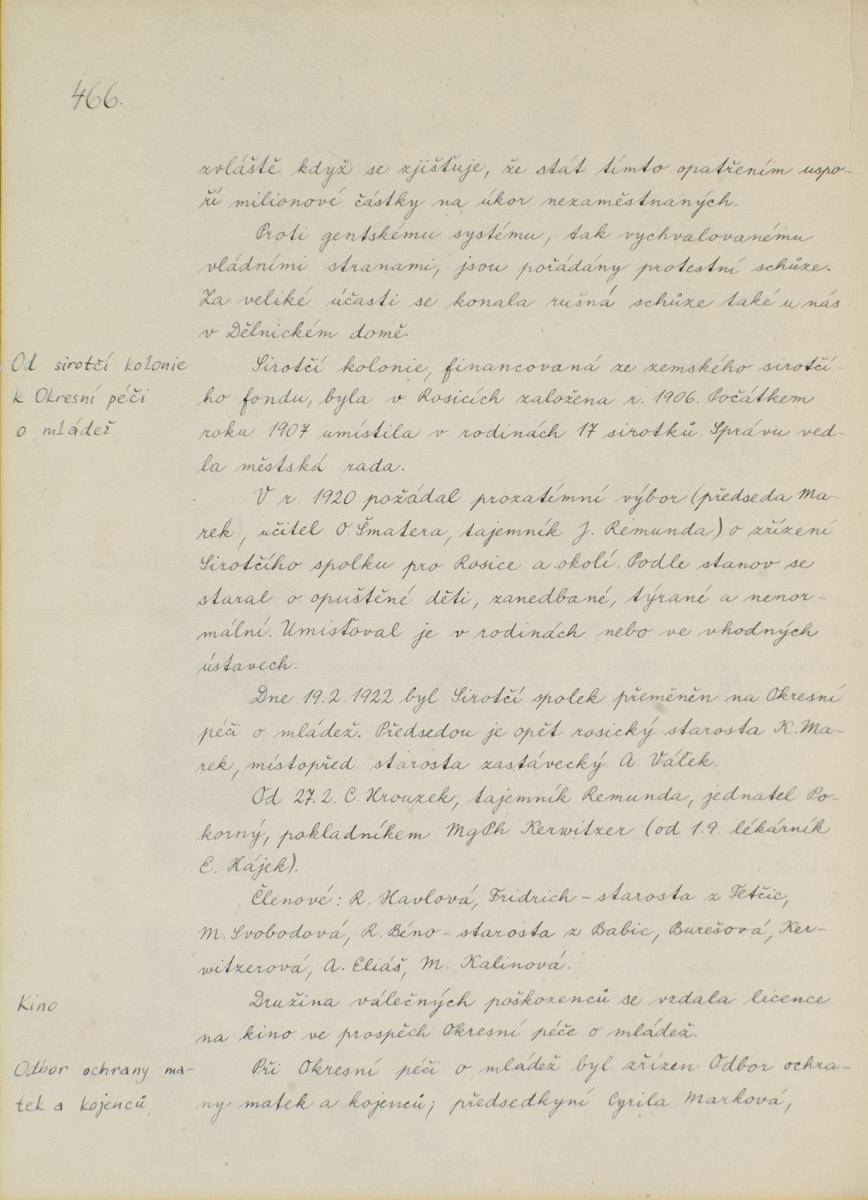 466.
zvláště když se zjišťuje, že stát tímto opatřením uspo-
ří milionové částky na úkor nezaměstnaných.
Proti gentskému systému, tak vychvalovanému
vládními stranami, jsou pořádány protestní schůze.
Za veliké účasti se konala rušná schůze také u nás
v Dělnickém domě.
Od sirotčí kolonie
k Okresní péči
o mládež
Sirotčí kolonie, financovaná ze zemského sirotčí-
ho fondu, byla v Rosicích založena r. 1906. Počátkem
roku 1907 umístila v rodinách 17 sirotků. Správu ved-
la městská rada.
V r. 1920 požádal prozatímní výbor (předseda Ma-
rek, učitel O. Šmatera, tajemník J. Remunda) o zřízení
Sirotčího spolku pro Rosice a okolí. Podle stanov se
staral o opuštěné děti, zanedbané, týrané a nenor-
mální. Umisťoval je v rodinách nebo ve vhodných
ústavech.
Dne 19.2.1922 byl Sirotčí spolek přeměněn na Okresní
péči o mládež. Předsedou je opět rosický starosta K. Ma-
rek, místopřed. starosta zastávecký A. Válek.
Od 27.2. C. Hrouzek, tajemník Remunda, jednatel Po-
korný, pokladníkem MgPh Kerwitzer (od 1.9. lékárník
E. Hájek).
Členové: R. Havlová, Fridrich - starosta z Tetčic,
M. Svobodová, R. Béno - starosta z Babic, Burešová, Ker-
witzerová, A. Eliáš, M. Kalinová.
Kino
Družina válečných poškozenců se vzdala licence
na kino ve prospěch Okresní péče o mládež.
Odbor ochrany ma-
tek a kojenců
Při Okresní péči o mládež byl zřízen Odbor ochra-
ny matek a kojenců; předsedkyní Cyrila Marková,